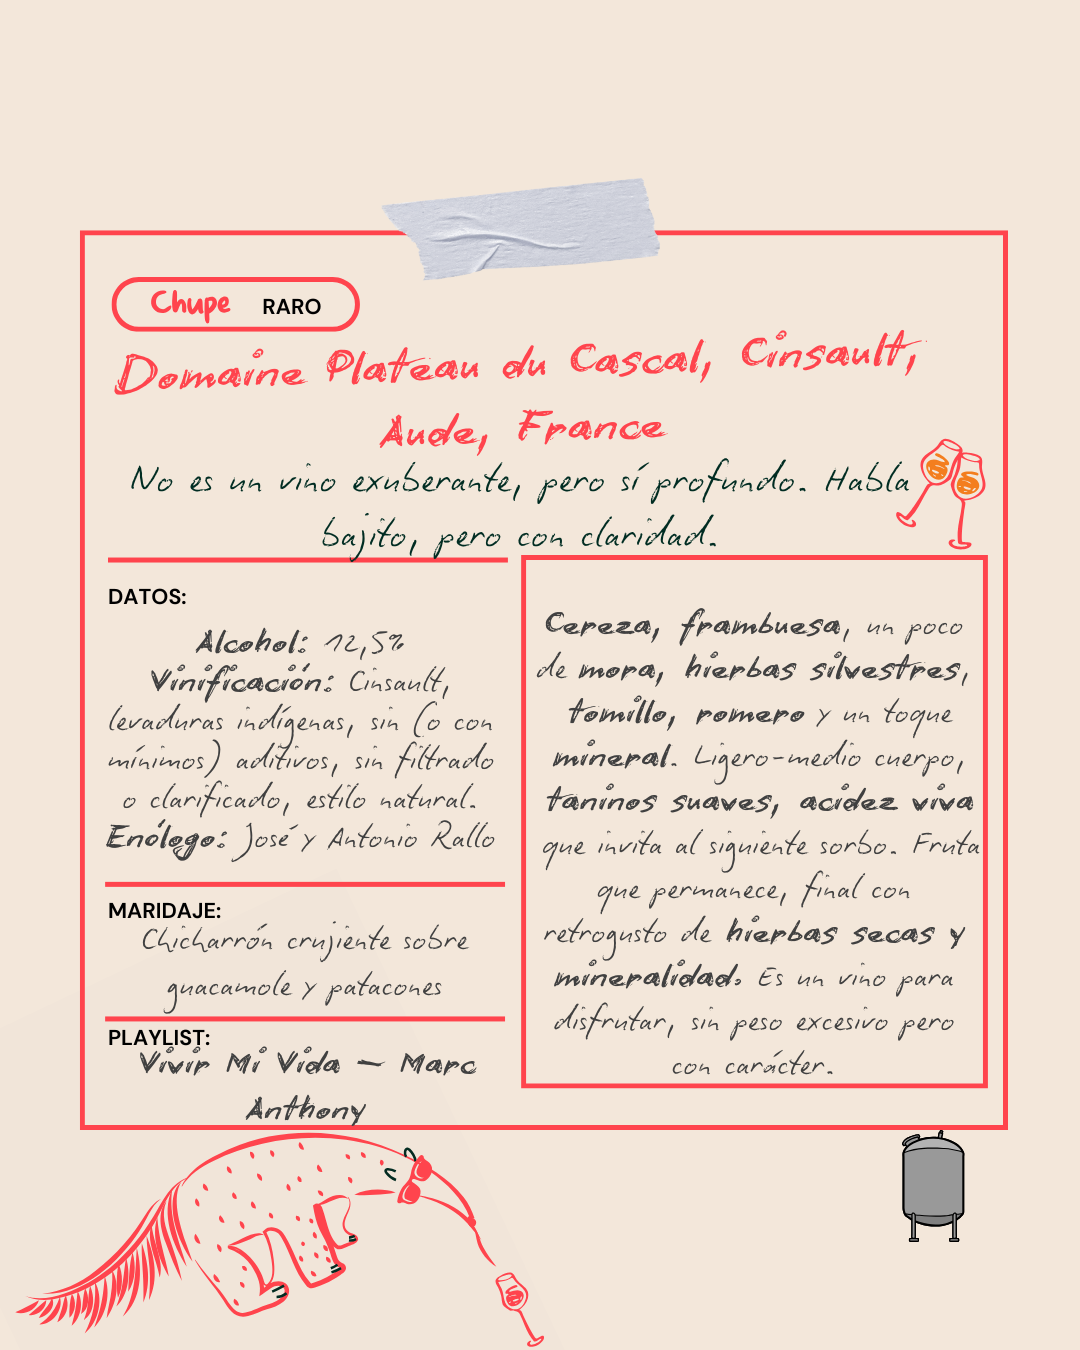 Chupe RARO
Domaine Plateau du Cascal, Cinsault,
Aude, France
No es un vino exuberante, pero sí profundo. Habla
bajito, pero con claridad.
DATOS:
Alcohol: 12,5%
Vinificación: Cinsault,
levaduras indígenas, sin (o con
mínimos) aditivos, sin filtrado
o clarificado, estilo natural.
Enólogo: José y Antonio Rallo
MARIDAJE:
Chicharrón crujiente sobre
guacamole y patacones
PLAYLIST:
Vivir Mi Vida – Marc
Anthony
Cereza, frambuesa, un poco
de mora, hierbas silvestres,
tomillo, romero y un toque
mineral. Ligero-medio cuerpo,
taninos suaves, acidez viva
que invita al siguiente sorbo. Fruta
que permanece, final con
retrogusto de hierbas secas y
mineralidad. Es un vino para
disfrutar, sin peso excesivo pero
con carácter.